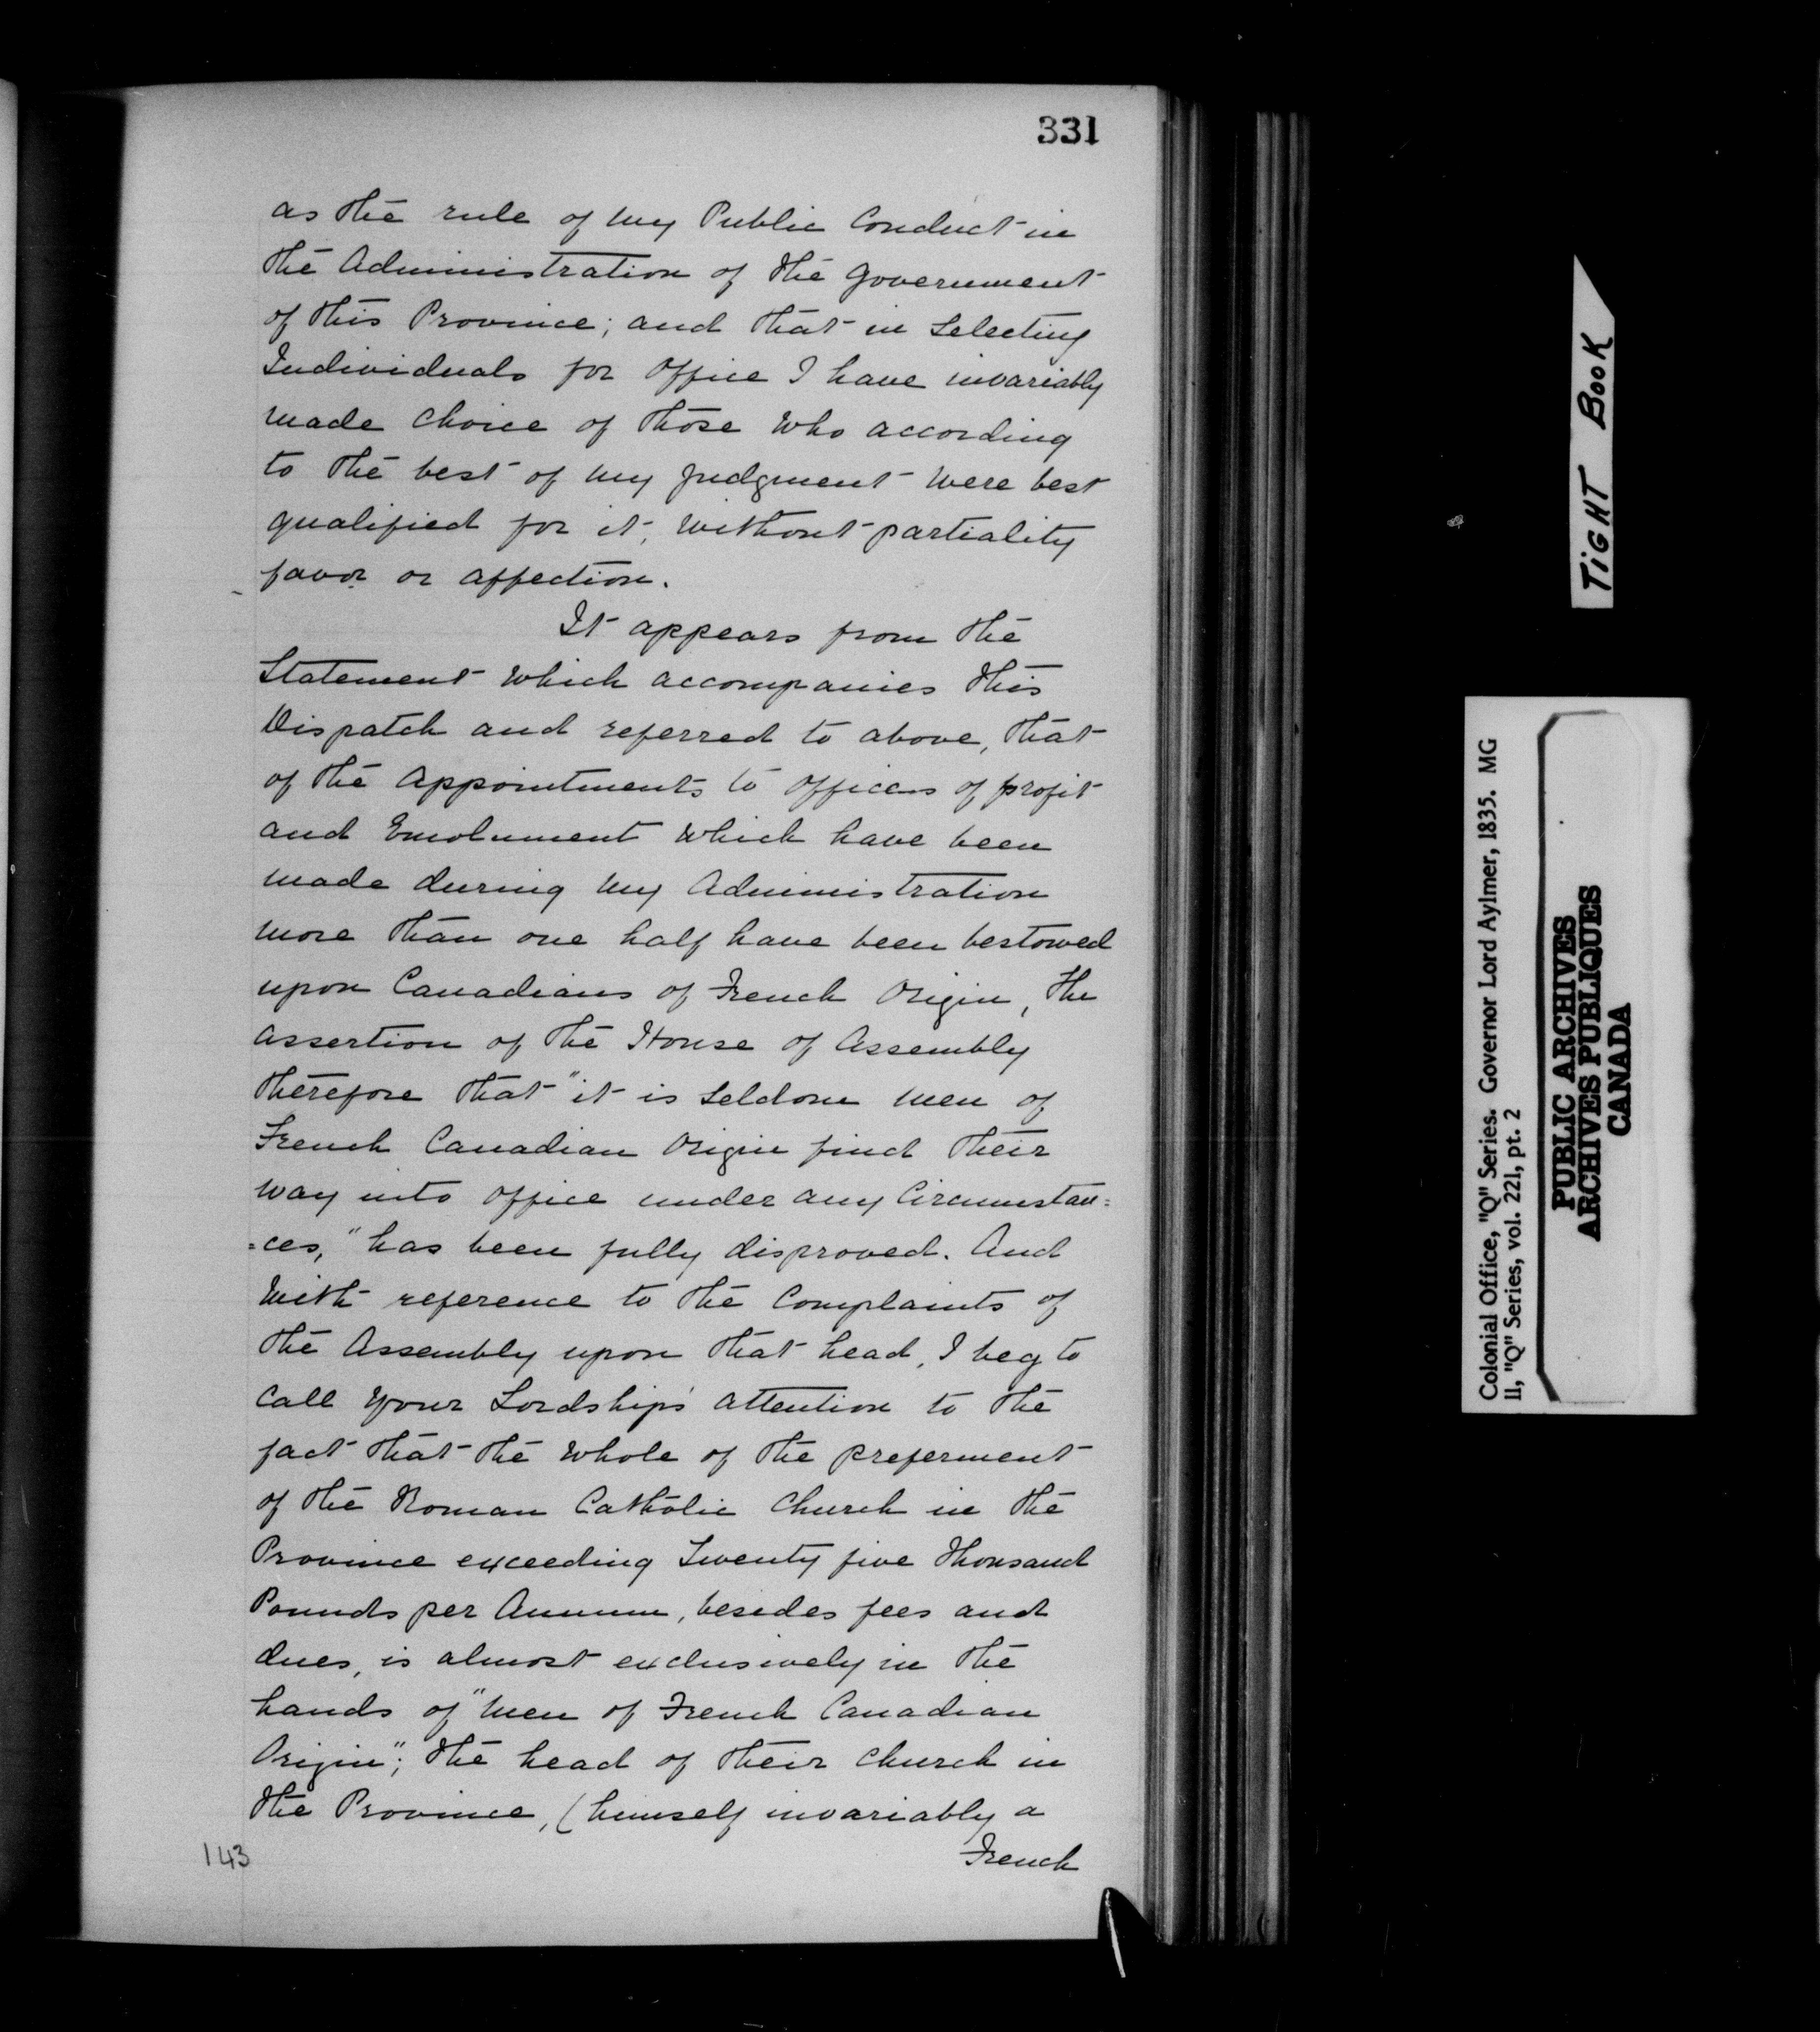 331
as the rule of my Public Conduct in
the Administration of the Government
of this Province; and that in Selecting
Individuals for Office I have invariably
made choice of those who according
to the best of my judgment were best
qualified for it, without partiality
favor or affection.
It appears from the
Statement which accompanies this
Dispatch and referred to above, that
of the Appointments to Offices of profit
and Emolument which have been
made during my Administration
more than one half have been bestowed
upon Canadians of French Origin, the
assertion of the House of Assembly
therefore that "it is seldom men of
French Canadian Origin find their
way into office under any Circumstan=
=ces," has been fully disproved. And
with reference to the Complaints of
the Assembly upon that head, I beg to
call Your Lordship's attention to the
fact that the whole of the preferment
of the Roman Catholic Church in the
Province exceeding Twenty five thousand
Pounds per Annum, besides fees and
dues, is almost exclusively in the
hands of "men of French Canadian
Origin"; the head of their church in
the Province, (himself invariably a
French
143
TIGHT BOOK
Colonial Office, "Q" Series. Governor Lord Aylmer, 1835. MG
11, "Q" Series, vol. 221, pt. 2
PUBLIC ARCHIVES
ARCHIVES PUBLIQUES
CANADA